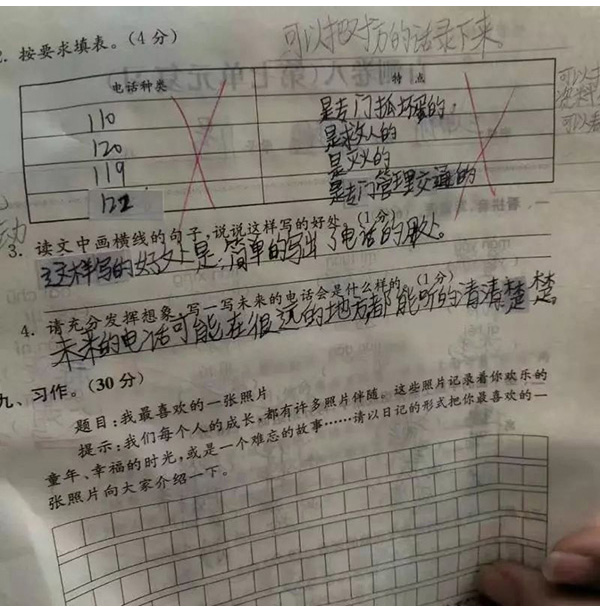 可以把对方的话录下来。
2. 按要求填表。(4分)
电话种类 特点
110 是专门抓坏蛋的。
120 是救人的
119 是灭火的
122 是专门管理交通的
3. 读文中画横线的句子,说说这样写的好处。(1分)
这样写的好处是:简单的写出了电话的用处。
4. 请充分发挥想象,写一写未来的电话会是什么样的。(1分)
未来的电话可能在很远的地方都能听的清清楚楚
九、习作。(30分)
题目:我最喜欢的一张照片
提示:我们每个人的成长,都有许多照片伴随。这些照片记录着你欢乐的
童年、幸福的时光,或是一个难忘的故事……请以日记的形式把你最喜欢的一
张照片向大家介绍一下。